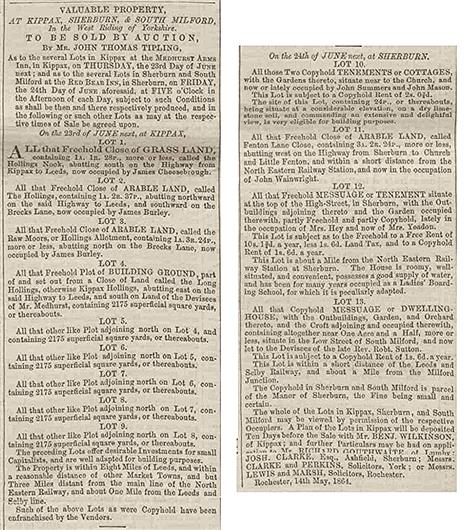 VALUABLE PROPERTY,
AT KIPPAX, SHERBURN, & SOUTH MILFORD,
In the West Riding of Yorkshire.
TO BE SOLD BY AUCTION,
BY MR. JOHN THOMAS TIPLING,
As to the several Lots in Kippax at the MEDHURST ARMS
Inn, in Kippax, on THURSDAY, the 23rd Day of June
next; and as to the several Lots in Sherburn and South
Milford at the RED BEAR INN, in Sherburn, on FRIDAY,
the 24th Day of June aforesaid, at FIVE o'Clock in
the Afternoon of each Day, subject to such Conditions
as shall be then and there respectively produced, and in
the following or such other Lots as may at the respec-
tive times of Sale be agreed upon.
On the 23rd of JUNE next, at KIPPAX,
LOT 1.
ALL that Freehold Close of GRASS LAND,
containing 1A. 1R. 28P., more or less, called the
Hollings Nook, abutting south on the Highway from
Kippax to Leeds, now occupied by James Cheesebrough.
LOT 2.
All that Freehold Close of ARABLE LAND, called
The Hollings, containing 1A. 2R. 37P., abutting northward
on the said Highway to Leeds, and southward on the
Brecks Lane, now occupied by James Burley.
LOT 3.
All that Freehold Close of ARABLE LAND, called the
Raw Moors, or Hollings Allotment, containing 1A. 3R. 24P.,
more or less, abutting north on the Brecks Lane, now
occupied by James Burley.
LOT 4.
All that Freehold Plot of BUILDING GROUND, part
of and set out from a Close of Land called the Long
Hollings, otherwise Kippax Hollings, abutting east on the
said Highway to Leeds, and south on Land of the Devisees
of Mr. Medhurst, containing 2175 superficial square yards,
or thereabouts.
LOT 5.
All that other like Plot adjoining north on Lot 4, and
containing 2175 superficial square yards, or thereabouts.
LOT 6.
All that other like Plot adjoining north on Lot 5, con-
taining 2175 superficial square yards, or thereabouts.
LOT 7.
All that other like Plot adjoining north on Lot 6, con-
taining 2175 superficial square yards, or thereabouts.
LOT 8.
All that other like Plot adjoining north on Lot 7, con-
taining 2175 superficial square yards, or thereabouts.
LOT 9.
All that other like Plot adjoining north on Lot 8, con-
taining 2175 superficial square yards, or thereabouts.
The preceding Lots offer desirable Investments for small
Capitalists, and are well adapted for building purposes.
The Property is within Eight Miles of Leeds, and within
a reasonable distance of other Market Towns, and but
Three Miles distant from the main line of the North
Eastern Railway, and about One Mile from the Leeds and
Selby line.
Such of the above Lots as were Copyhold have been
enfranchised by the Vendors.
On the 24th of JUNE next, at SHERBURN.
LOT 10.
All those Two Copyhold TENEMENTS or COTTAGES,
with the Gardens thereto, situate near to the Church, and
now or lately occupied by John Summers and John Mason.
This Lot is subject to a Copyhold Rent of 2s. 0½d.
The site of this Lot, containing 24P., or thereabouts,
being situate at a considerable elevation, on a dry lime-
stone soil, and commanding an extensive and delightful
view, is very eligible for building purposes.
LOT 11.
All that Freehold Close of ARABLE LAND, called
Fenton Lane Close, containing 3A. 2R. 24P., more or
less, abutting west on the Highway from Sherburn to Church
and Little Fenton, and within a short distance from the
North Eastern Railway Station, and now in the occupation
of John Wainwright.
LOT 12.
All that Freehold MESSUAGE or TENEMENT situate
at the top of the High-street, in Sherburn, with the Out-
buildings adjoining thereto and the Garden occupied
therewith, partly Freehold and partly Copyhold, lately in
the occupation of Mrs. Hey and now of Mrs. Yeadon.
This Lot is subject as to the Freehold to a Free Rent of
10s. 1½d. a year, less 1s. 6d. Land Tax, and to a Copyhold
Rent of 1s. 6d. a year.
This Lot is about a Mile from the North Eastern Rail-
way Station at Sherburn. The House is roomy, well-
situated, and convenient, possesses a good supply of water,
and has been for many years occupied as a Ladies' Board-
ing School, for which it is peculiarly adapted.
LOT 13.
All that Copyhold MESSUAGE or DWELLING-
HOUSE, with the Outbuildings, Garden, and Orchard
thereto, and the Croft adjoining and occupied therewith,
containing altogether near One Acre and a Half, more or
less, situate in the Low Street of South Milford, and now
let to the Devisees of the late Mr. Robt. Sutton.
This Lot is subject to a Copyhold Rent of 1s. 6d. a year.
This Lot is within a short distance of the Leeds and
Selby Railway, and about a Mile from the Milford
Junction.
The Copyhold in Sherburn and South Milford is parcel
of the Manor of Sherburn, the Fine being small and
certain.
The whole of the Lots in Kippax, Sherburn, and South
Milford may be viewed by permission of the respective
Occupiers. A Plan of the Lots in Kippax will be deposited
Ten Days before the Sale with Mr. BENJ. WILKINSON,
of Kippax; and further Particulars may be had on appli-
cation to Mr. RICHARD GOUTHWAITE, of Lumby;
JOSH. CLARKE, Esq., Ashfield, Sherburn; Messrs.
CLARKE and PERKINS, Solicitors, York; or Messrs.
LEWIS and MARSH, Solicitors, Rochester.
Rochester, 14th May, 1864.